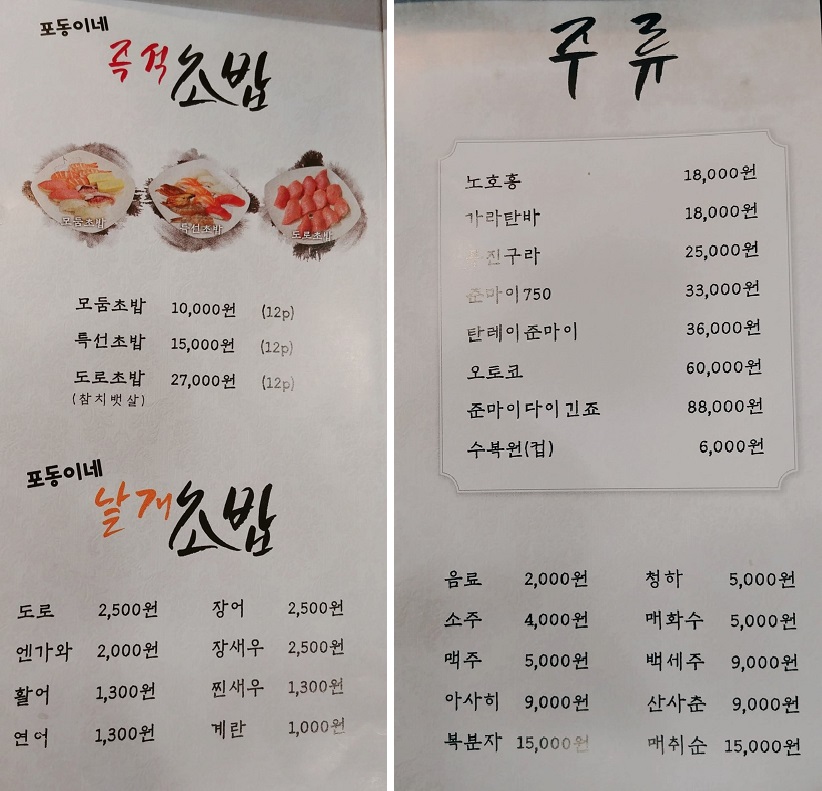 포동이네
즉석초밥
모둠초밥
특선초밥
도로초밥
모둠초밥 10,000원 (12p)
특선초밥 15,000원 (12p)
도로초밥 27,000원 (12p)
(참치뱃살)
포동이네
낱개초밥
도로 2,500원 장어 2,500원
엔가와 2,000원 장새우 2,500원
활어 1,300원 찐새우 1,300원
연어 1,300원 계란 1,000원
주류
노호홍 18,000원
가라탄바 18,000원
진구라 25,000원
준마이750 33,000원
탄레이준마이 36,000원
오토코 60,000원
준마이다이긴죠 88,000원
수복원(컵) 6,000원
음료 2,000원 청하 5,000원
소주 4,000원 매화수 5,000원
맥주 5,000원 백세주 9,000원
아사히 9,000원 산사춘 9,000원
복분자 15,000원 매취순 15,000원